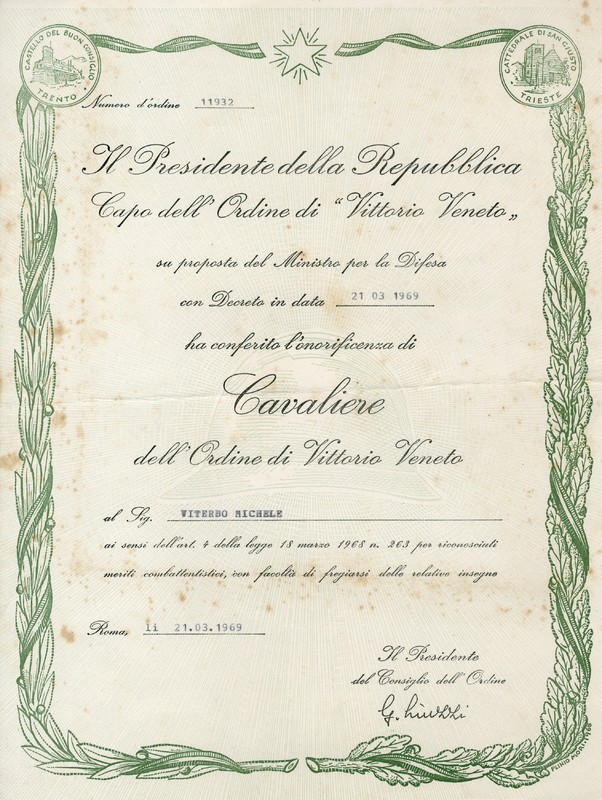 CASTELLO DEL BUON CONSIGLIO
TRENTO
CATTEDRALE DI SAN GIUSTO
TRIESTE
Numero d'ordine 11932
Il Presidente della Repubblica
Capo dell'Ordine di "Vittorio Veneto„
su proposta del Ministro per la Difesa
con Decreto in data 21 03 1969
ha conferito l'onorificenza di
Cavaliere
dell'Ordine di Vittorio Veneto
al Sig. VITERBO MICHELE
ai sensi dell'art. 4 della legge 18 marzo 1968 n. 263 per riconosciuti
meriti combattentistici, con facoltà di fregiarsi delle relative insegne
Roma, li 21.03.1969
Il Presidente
del Consiglio dell'Ordine